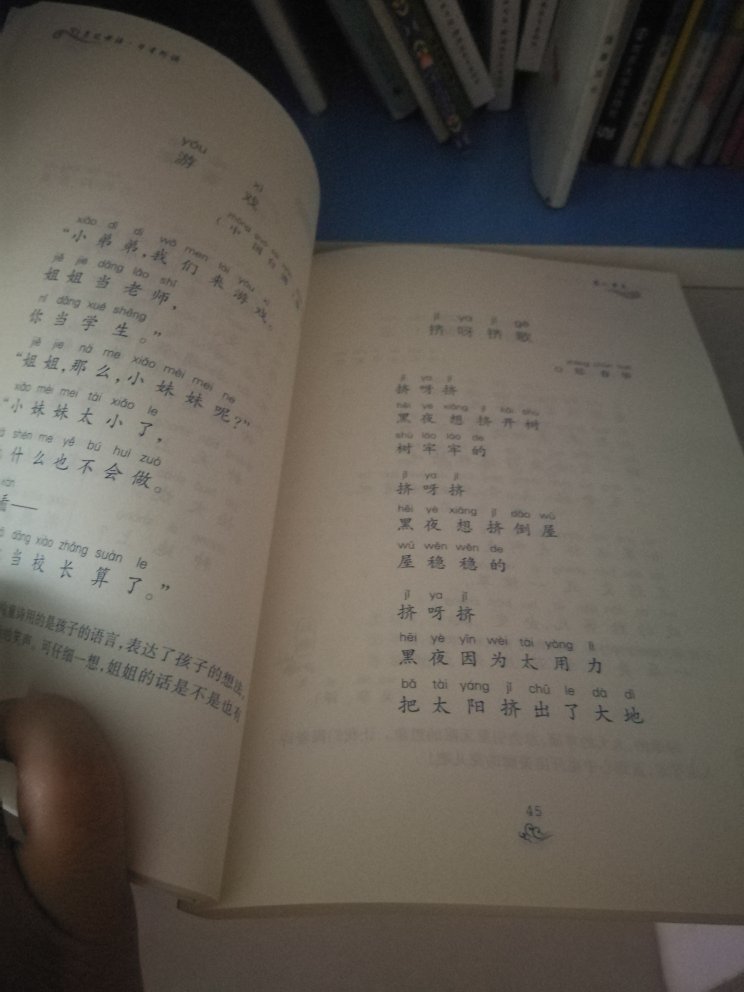 yóu xì
游 戏
xiǎo dì di wǒ men lái yóu xì
“小弟弟,我们来游戏。
jiě jie dāng lǎo shī
姐姐当老师,
nǐ dāng xué shēng
你当学生。”
jiě jie nà me xiǎo mèi mei ne
“姐姐,那么,小妹妹呢?”
xiǎo mèi mei tài xiǎo le
“小妹妹太小了,
shén me yě bú huì zuò
什么也不会做。
看——
dāng xiào zhǎng suàn le
当校长算了。”
童诗用的是孩子的语言,表达了孩子的想法,
笑声。可仔细一想,姐姐的话是不是也有
jǐ ya jǐ gē
挤呀挤歌
jǐ ya jǐ
挤呀挤
hēi yè xiǎng jǐ kāi shù
黑夜想挤开树
shù láo láo de
树牢牢的
jǐ ya jǐ
挤呀挤
hēi yè xiǎng jǐ dǎo wū
黑夜想挤倒屋
wū wěn wěn de
屋稳稳的
jǐ ya jǐ
挤呀挤
hēi yè yīn wèi tài yòng lì
黑夜因为太用力
bǎ tài yáng jǐ chū le dà dì
把太阳挤出了大地
45